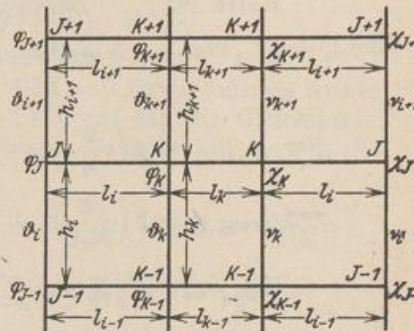 J+1 K+1 K+1 J+1
φJ+1 φK+1 χK+1 χJ+
li+1 lk+1 li+1
ϑi+1 hi+1 ϑk+1 hk+1 νk+1 νi+
J K K J
φJ φK χK χJ
li lk li
ϑi hi ϑk hk νk νi
J-1 K-1 K-1 J-1
φJ-1 φK-1 χK-1 χJ-
li-1 lk-1 li-1